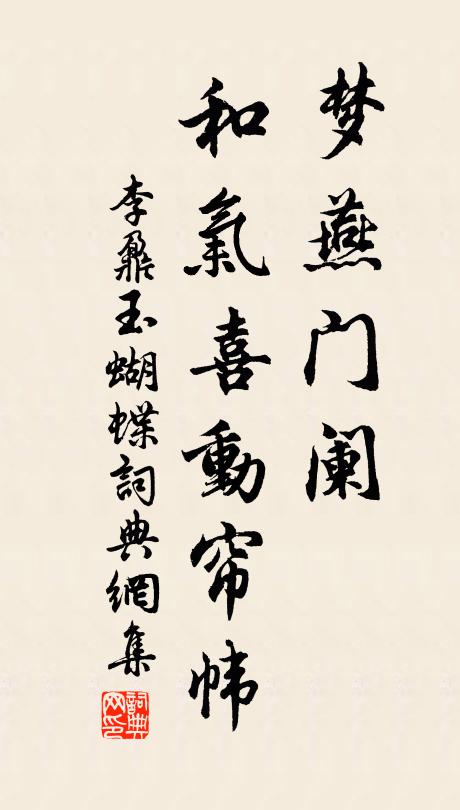 梦燕门阑
和氣喜動帘帏
李鼐玉蝴蝶詞典網集
詞典
网印